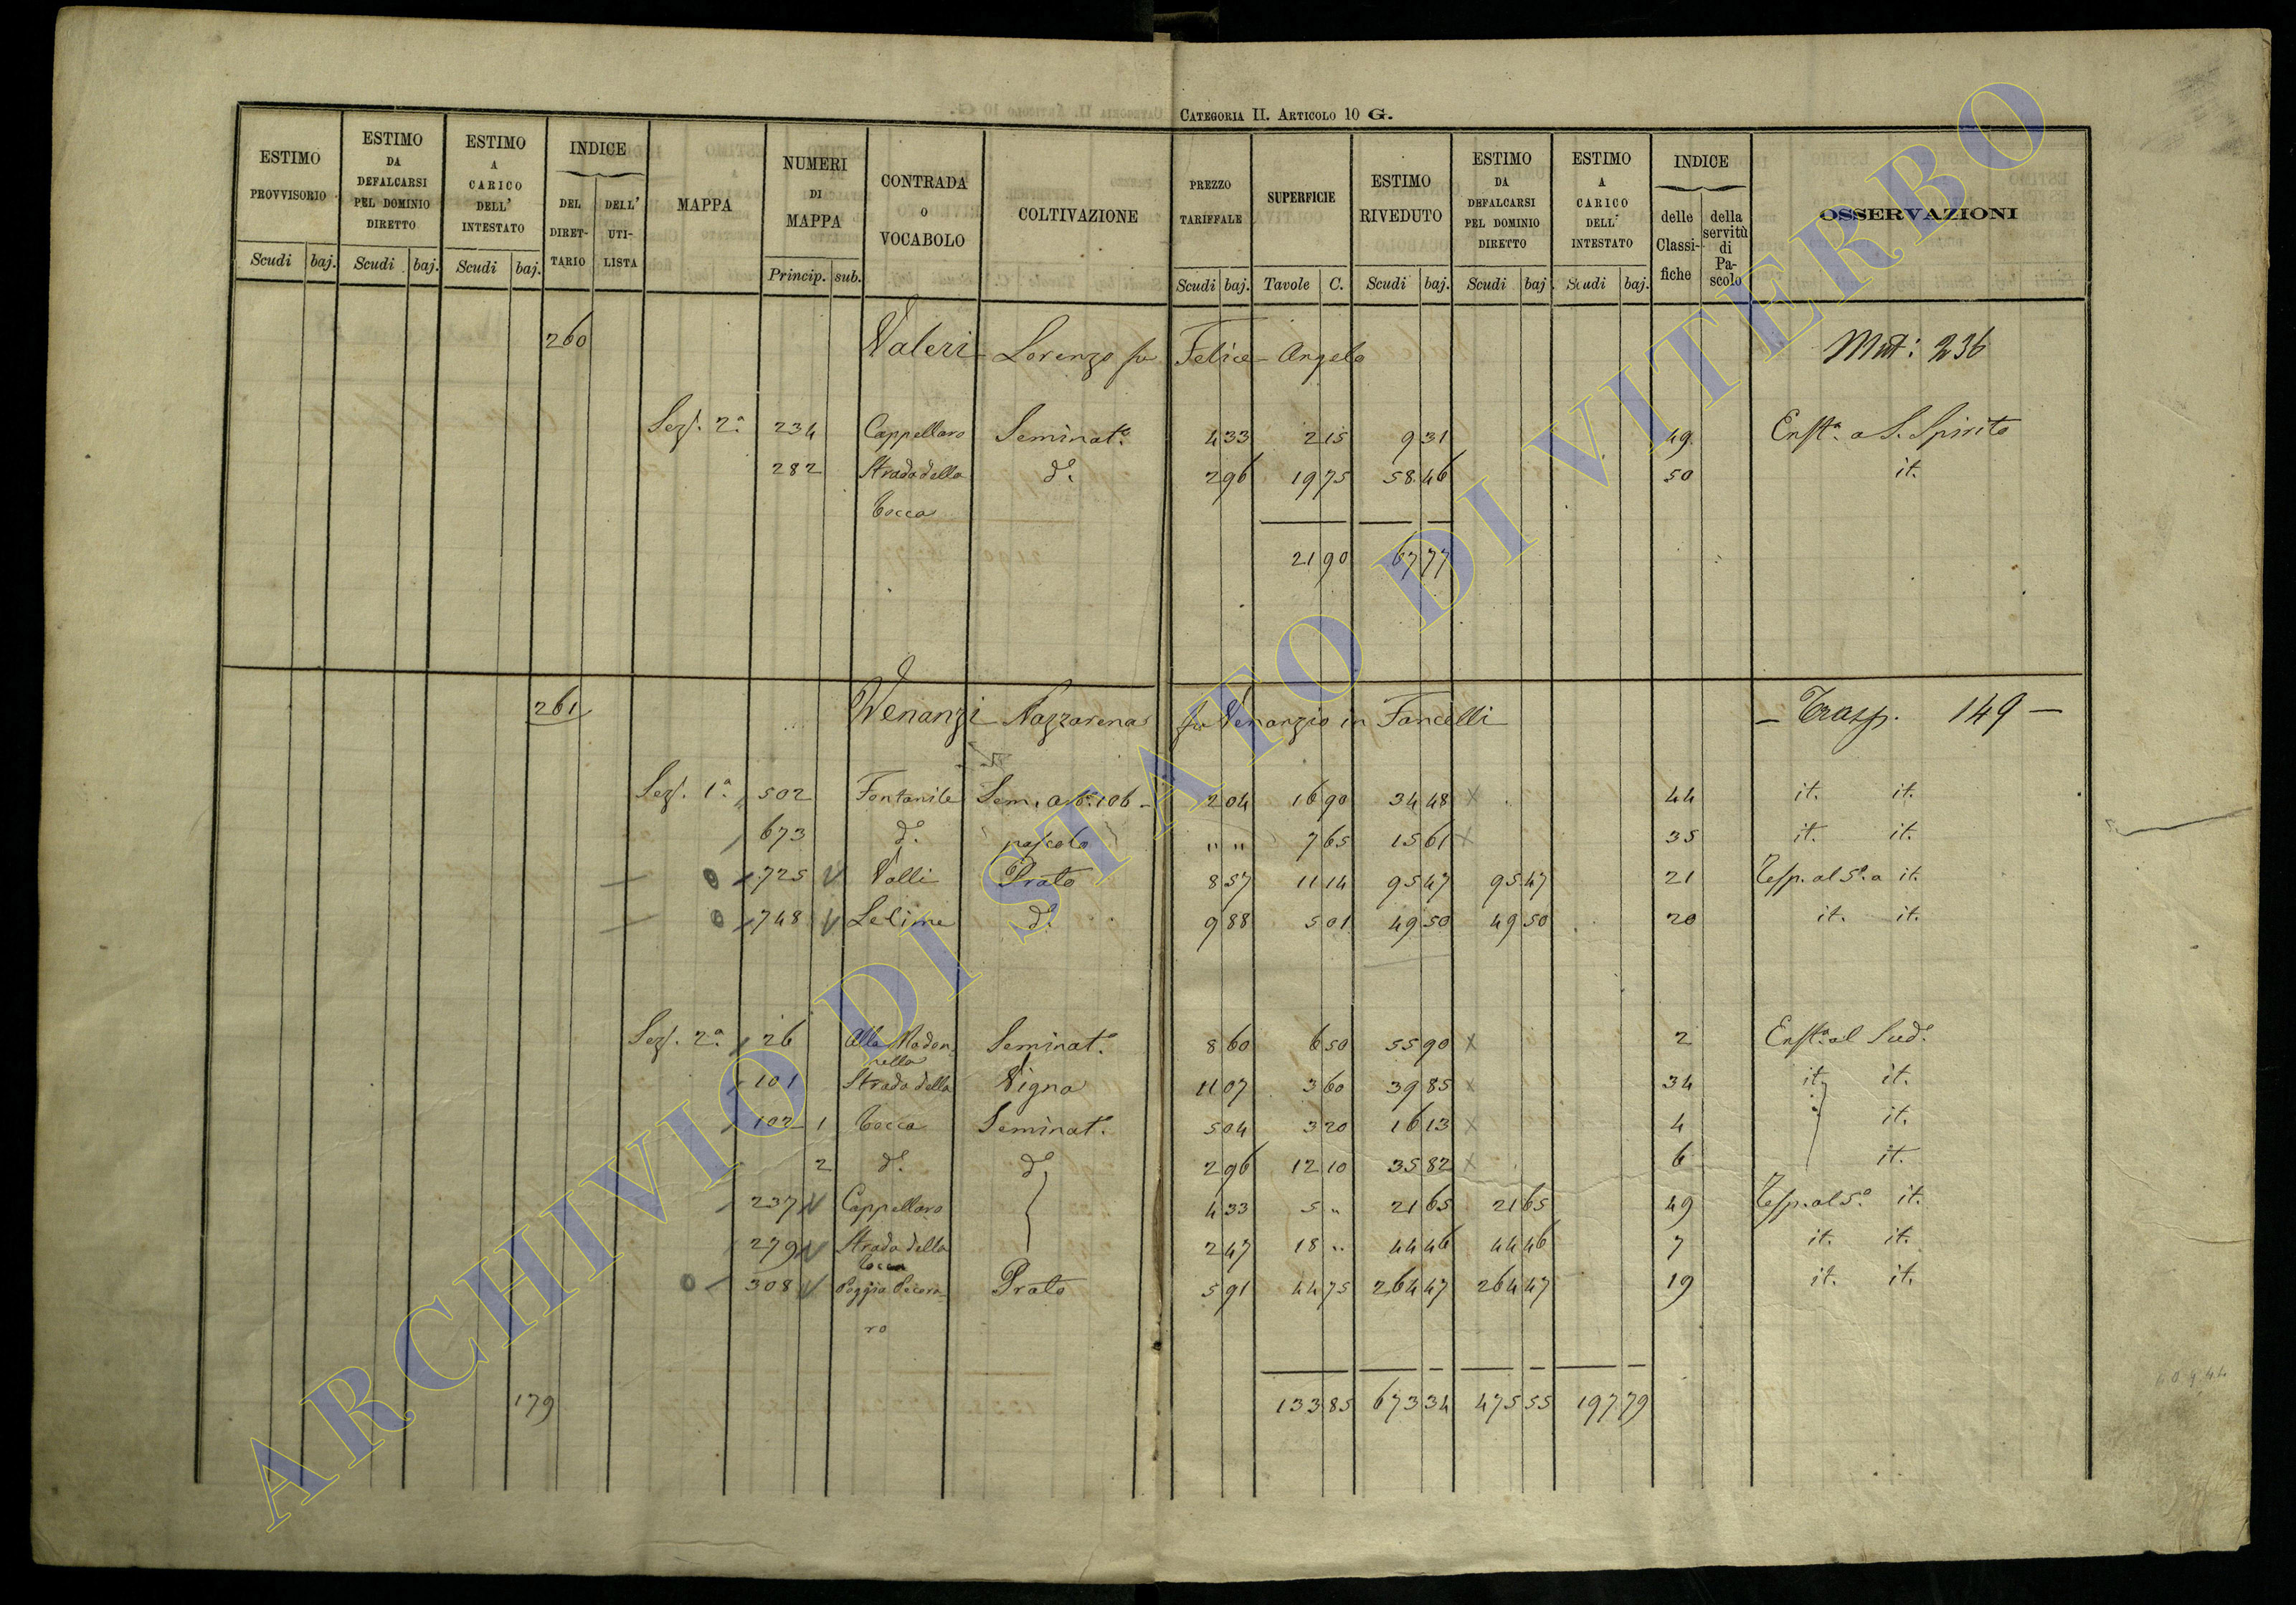 CATEGORIA II. ARTICOLO 10 G.
ESTIMO PROVVISORIO | ESTIMO DA DEFALCARSI PEL DOMINIO DIRETTO | ESTIMO A CARICO DELL' INTESTATO | INDICE | MAPPA | NUMERI DI MAPPA | CONTRADA O VOCABOLO | COLTIVAZIONE | PREZZO TARIFFALE | SUPERFICIE | ESTIMO RIVEDUTO | ESTIMO DA DEFALCARSI PEL DOMINIO DIRETTO | ESTIMO A CARICO DELL' INTESTATO | INDICE | OSSERVAZIONI
DEL DIRET-TARIO | DELL' UTI-LISTA | delle Classi-fiche | della servitù di Pa-scolo
Scudi baj. | Scudi baj. | Scudi baj. | Princip. sub. | Scudi baj. | Tavole C. | Scudi baj. | Scudi baj | Scudi baj.
260 Valeri Lorenzo fu Felice Angelo Mut: 236
Sez. 2ª 234 Cappellaro Seminatº 4 33 2 15 9 31 49 Enftª a S. Spirito
282 Strada della dº 2 96 19 75 58 46 50 it.
Rocca
21 90 67 77
261 Venanzi Nazzarena fu Venanzio in Fancelli — Trasp. 149 —
Sez. 1ª 502 Fontanile Sem. 2 04 16 90 34 48 x 44 it. it.
673 dº pascolo " " 7 65 15 61 x 35 it. it.
725 Valli Prato 8 57 11 14 95 47 95 47 21 it.
748 Le Cime dº 9 88 5 01 49 50 49 50 20 it. it.
Sez. 2ª 26 Alla Madon- Seminatº 8 60 6 50 55 90 x 2 Enftª al Sudº
nella
101 Strada della Vigna 11 07 3 60 39 85 x 34 it. it.
102 1 Rocca Seminatº 5 04 3 20 16 13 x 4 it.
2 dº dº 2 96 12 10 35 82 x 6 it.
237 Cappellaro 4 33 5 " 21 65 21 65 49 it.
279 Strada della 2 47 18 " 44 46 44 46 7 it. it.
Rocca
308 Poggio Pecora- Prato 5 91 44 75 264 47 264 47 19 it. it.
ro
179 133 85 673 34 475 55 197 79
ARCHIVIO DI STATO DI VITERBO